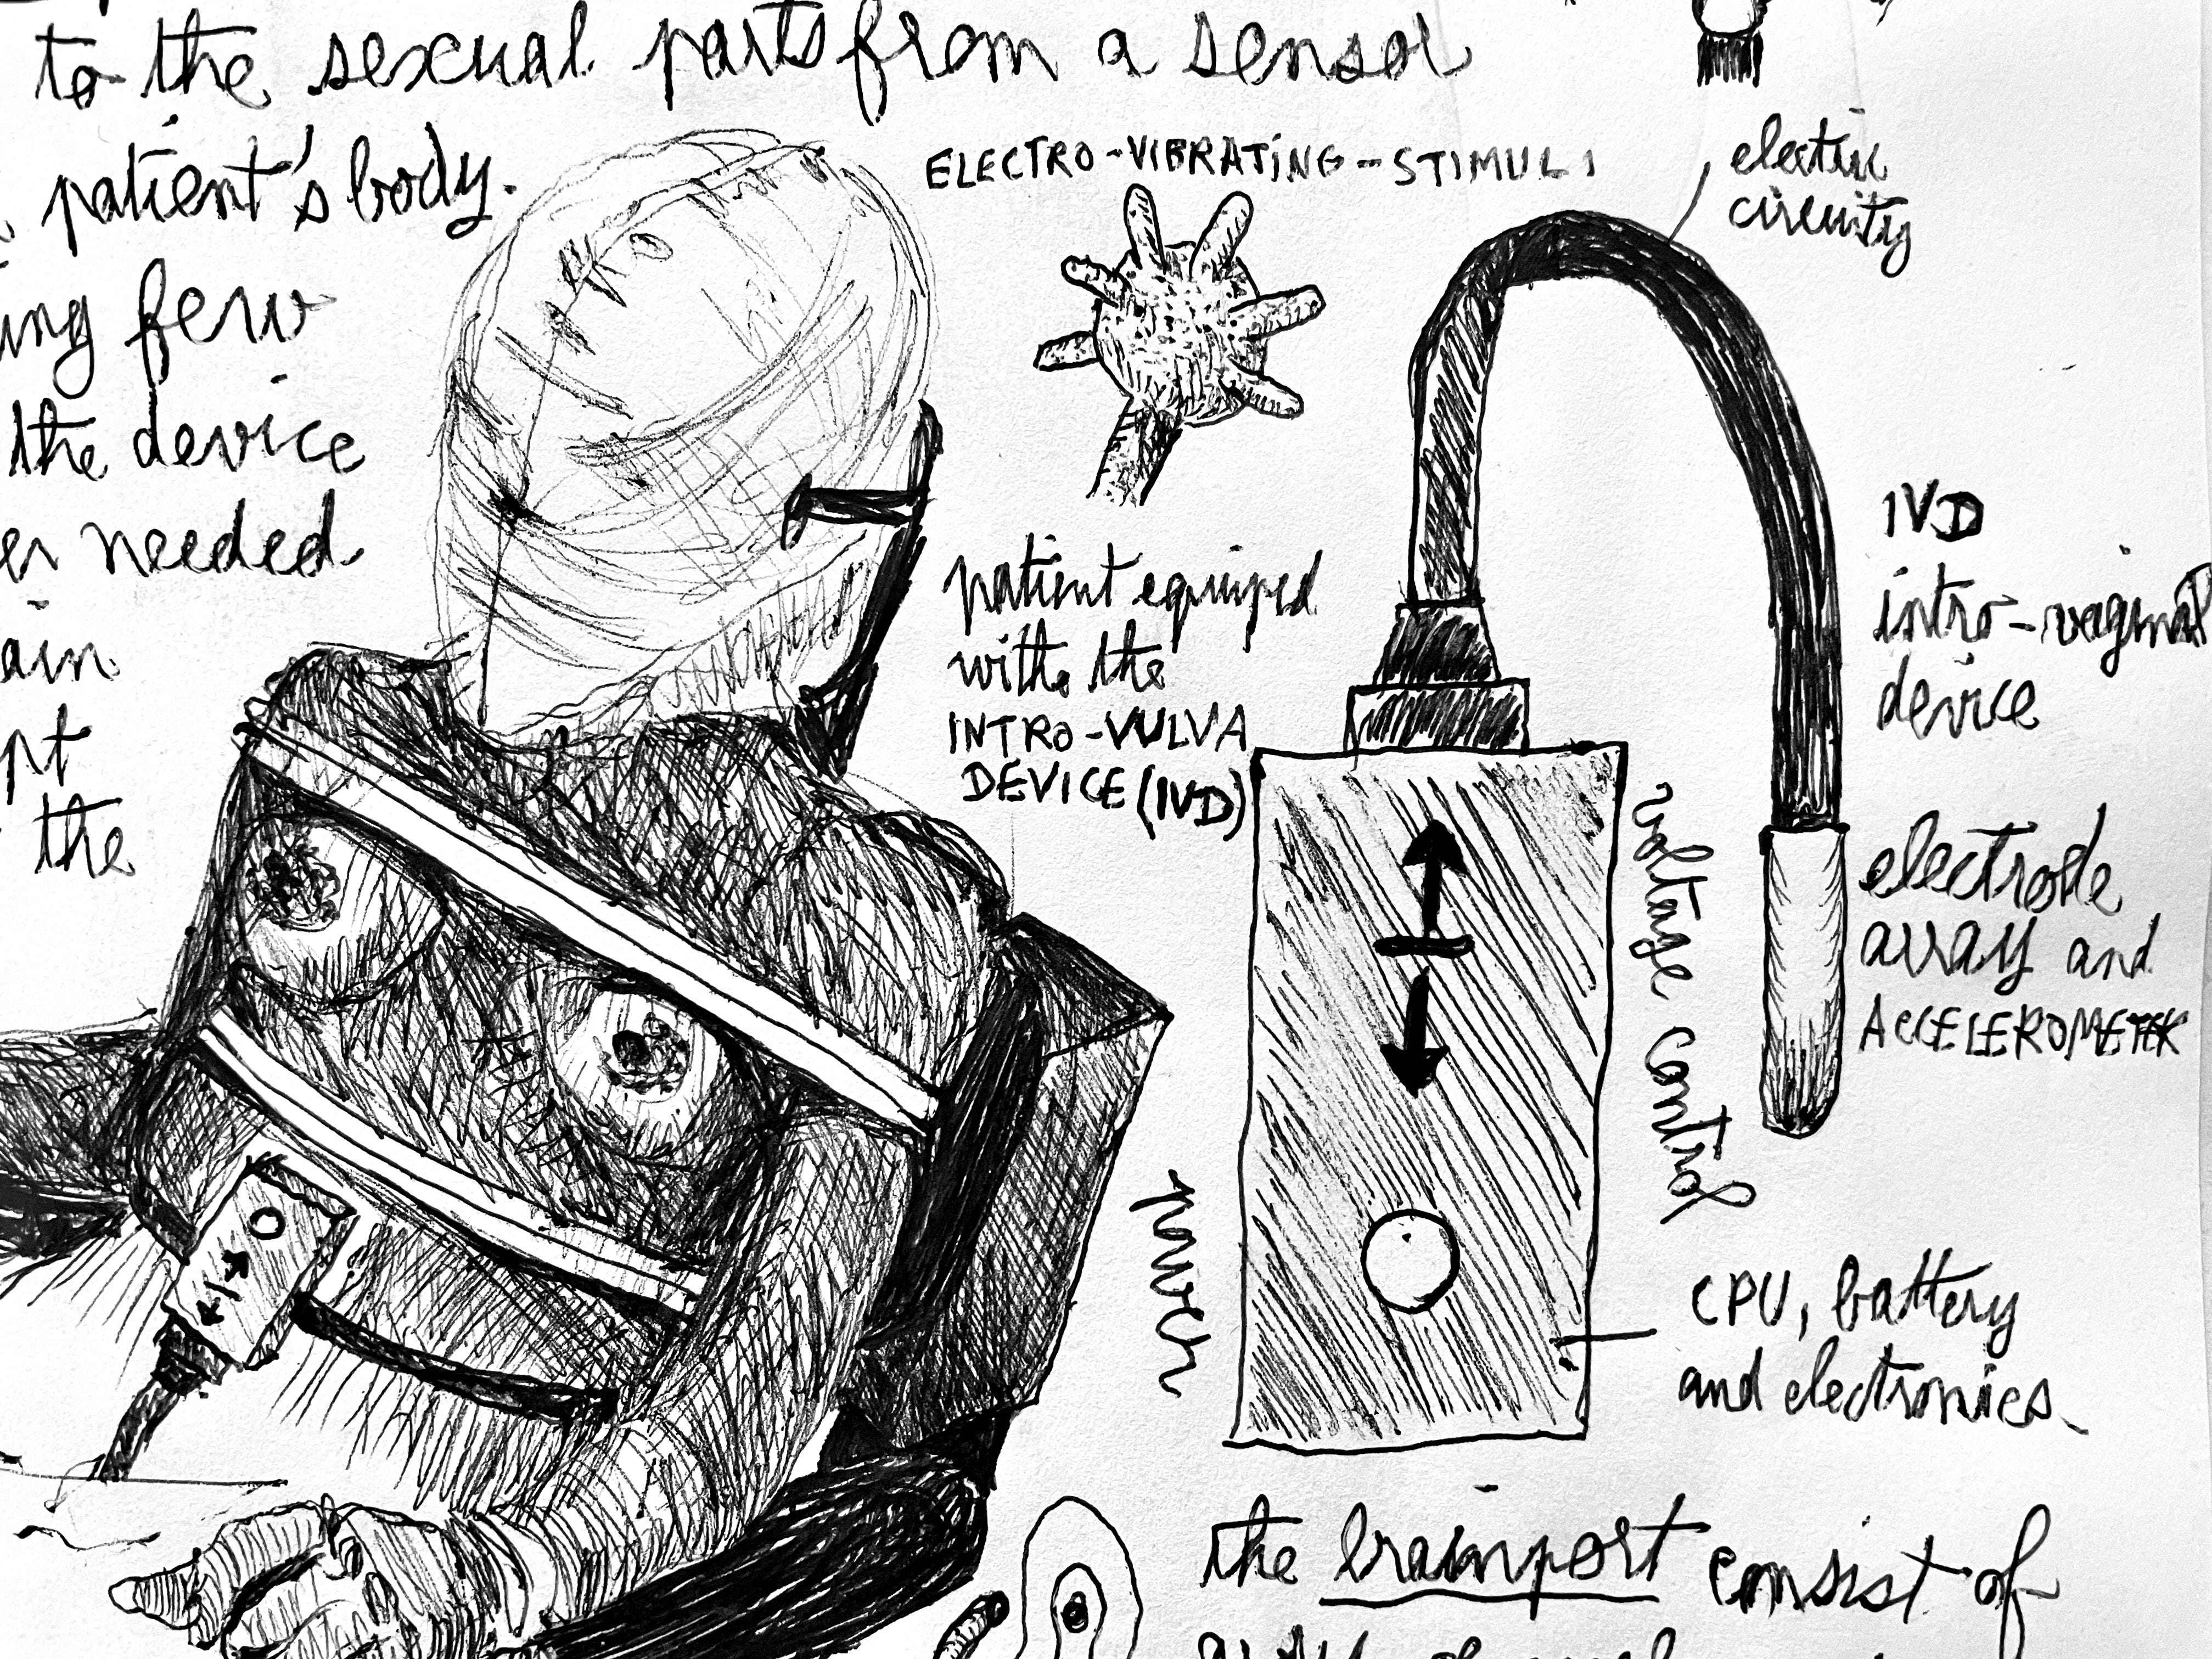 to the sexual parts from a sensor
patient's body.
ing few
the device
er needed
ain
pt
the
ELECTRO-VIBRATING-STIMULI
electric
circuity
patient equiped
with the
INTRO-VULVA
DEVICE (IVD)
IVD
intro-vaginal
device
voltage control
electrode
array and
ACCELEROMETER
power
CPU, battery
and electronics
the brainport consist of